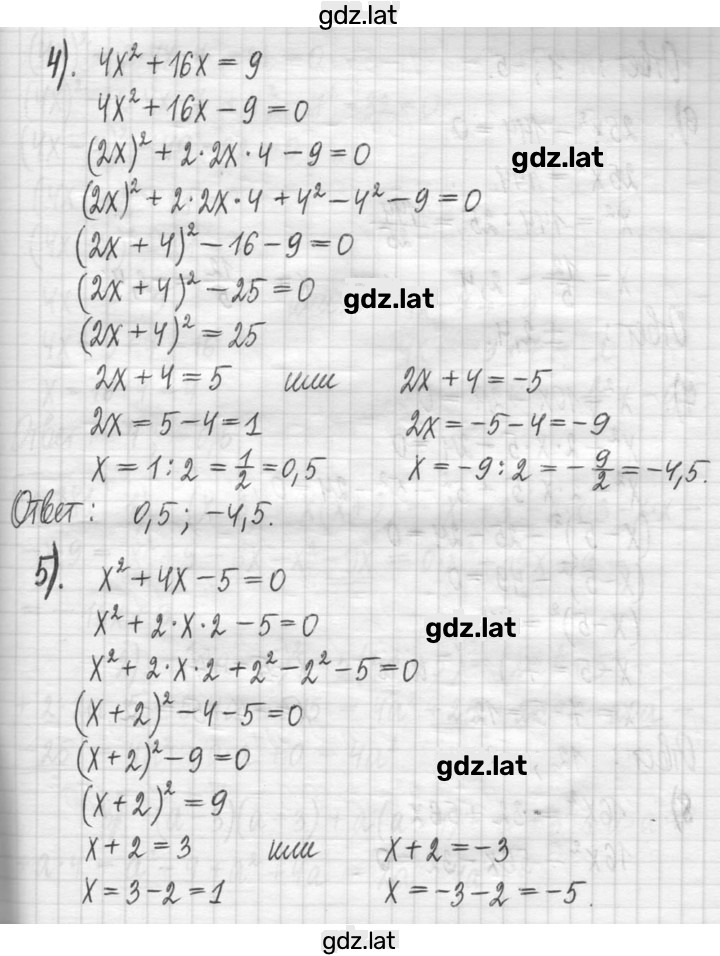 gdz.lat
4). 4x² + 16x = 9
4x² + 16x − 9 = 0
(2x)² + 2·2x·4 − 9 = 0
gdz.lat
(2x)² + 2·2x·4 + 4² − 4² − 9 = 0
(2x + 4)² − 16 − 9 = 0
(2x + 4)² − 25 = 0
gdz.lat
(2x + 4)² = 25
2x + 4 = 5 или 2x + 4 = −5
2x = 5 − 4 = 1 2x = −5 − 4 = −9
x = 1 : 2 = 1/2 = 0,5 x = −9 : 2 = −9/2 = −4,5.
Ответ: 0,5; −4,5.
5). x² + 4x − 5 = 0
x² + 2·x·2 − 5 = 0
gdz.lat
x² + 2·x·2 + 2² − 2² − 5 = 0
(x + 2)² − 4 − 5 = 0
(x + 2)² − 9 = 0
gdz.lat
(x + 2)² = 9
x + 2 = 3 или x + 2 = −3
x = 3 − 2 = 1 x = −3 − 2 = −5.
gdz.lat